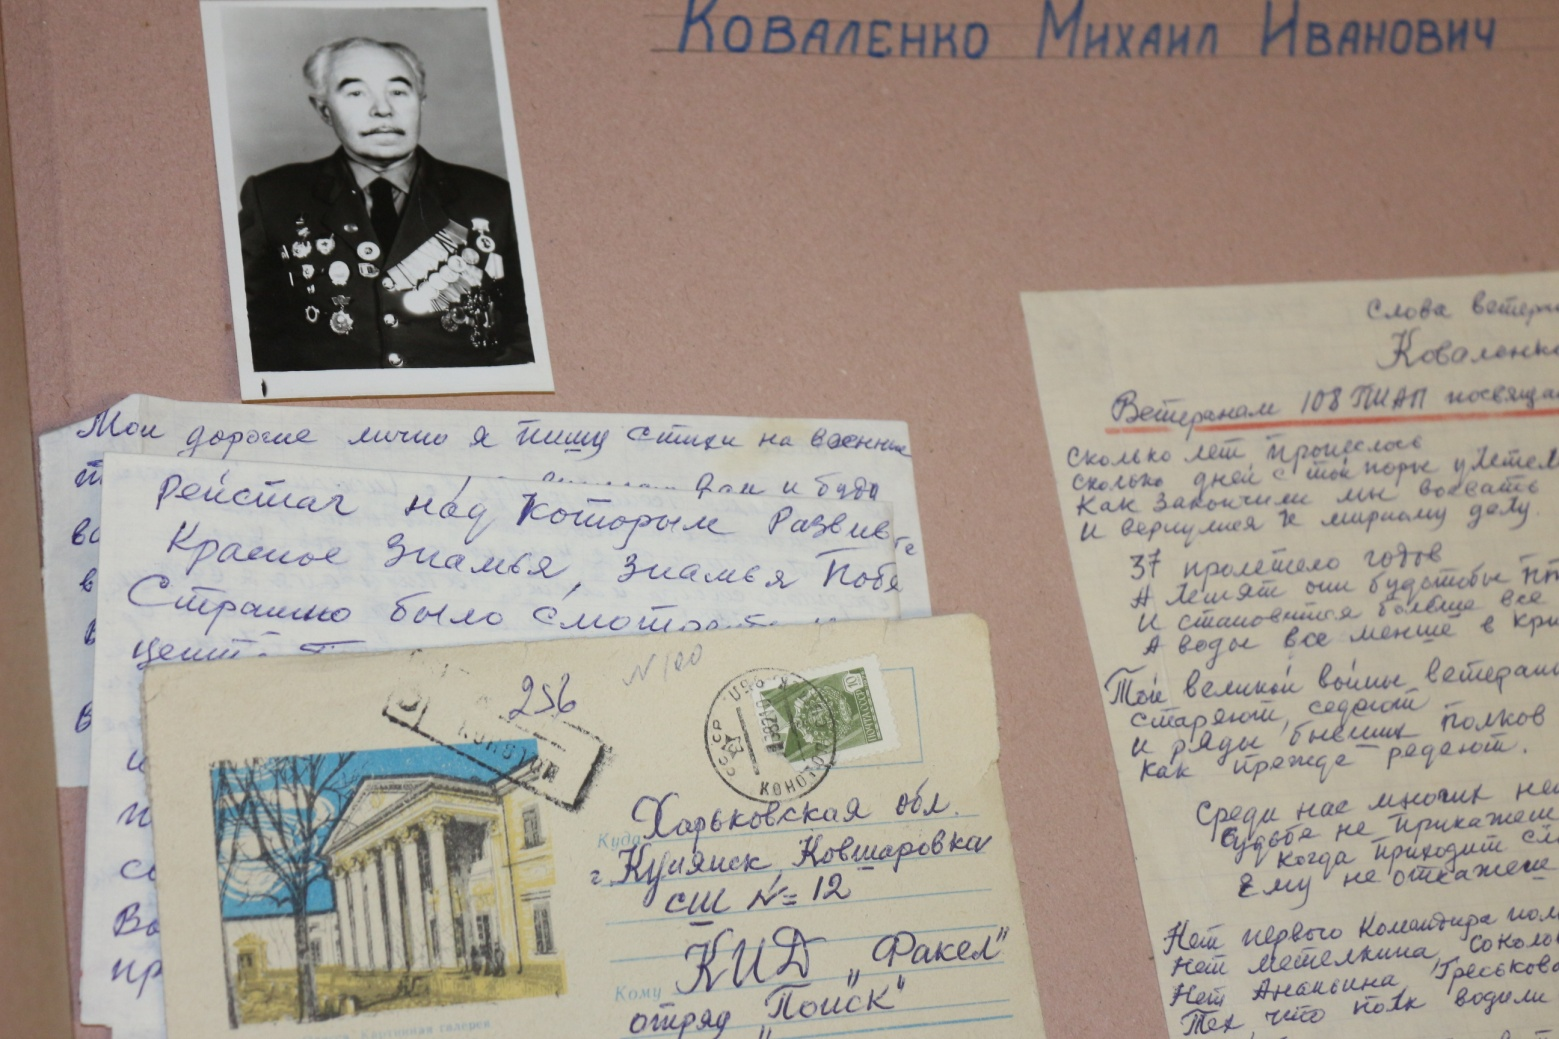 Коваленко Михаил Иванович
Мои дорогие лично я пишу стихи на военные
Вам и буду
Рейстаг над которым Развив
Красное Знамья, Знамья Побе
Страшно было смотреть
256
N 100
СССР
КОНОТОП
Куда Харьковская обл.
г. Купянск, Ковшаровка
сш №= 12
Кому КИД „Факел"
отряд „Поиск"
Картинная галерея
Слова ветера
Коваленко
Ветеранам 108 ПИАП посвяща
Сколько лет пронеслось
Сколько дней с той поры улетел
Как закончили мы воевать
И вернулися к мирному делу.
37 пролетело годов
А летят они будто бы
И становится больше все
А воды все меньше в
Той великой войны ветераны
Стареют, седеют
И ряды бывших полков
Как прежде редеют.
Среди нас многих не
Судьба не прикажеш
Когда приходит
Ему не откажеш
Нет первого Командира пол
Нет Метелкина, Соколо
Нет Ананьина, Греськова
Тех, что полк водили